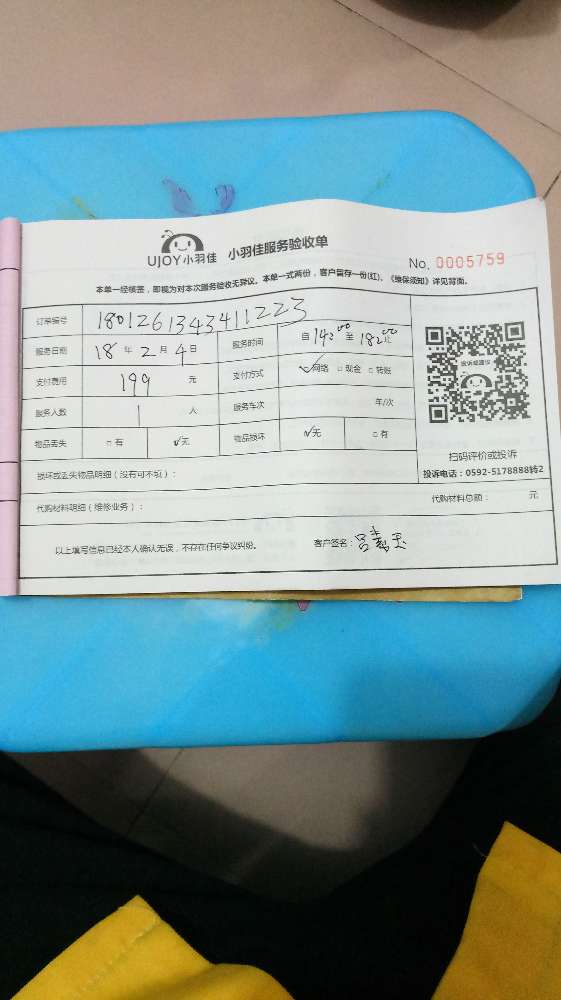 UJOY小羽佳 小羽佳服务验收单
No. 0005759
本单一经核签，即视为对本次服务验收无异议。本单一式两份，客户留存一份(红)，《维保须知》详见背面。
订单编号 1801261343411223
服务日期 18 年 2 月 4 日 服务时间 自 14点00 至 18点00 止
支付费用 199 元 支付方式 ✓网络 □现金 □转账
服务人数 1 人 服务车次 年/次
物品丢失 □有 ✓无 物品损坏 ✓无 □有
投诉或建议
扫码评价或投诉
投诉电话：0592-5178888转2
损坏或丢失物品明细（没有可不填）：
代购材料明细（维修业务）： 代购材料总额： 元
以上填写信息已经本人确认无误，不存在任何争议纠纷。 客户签名：